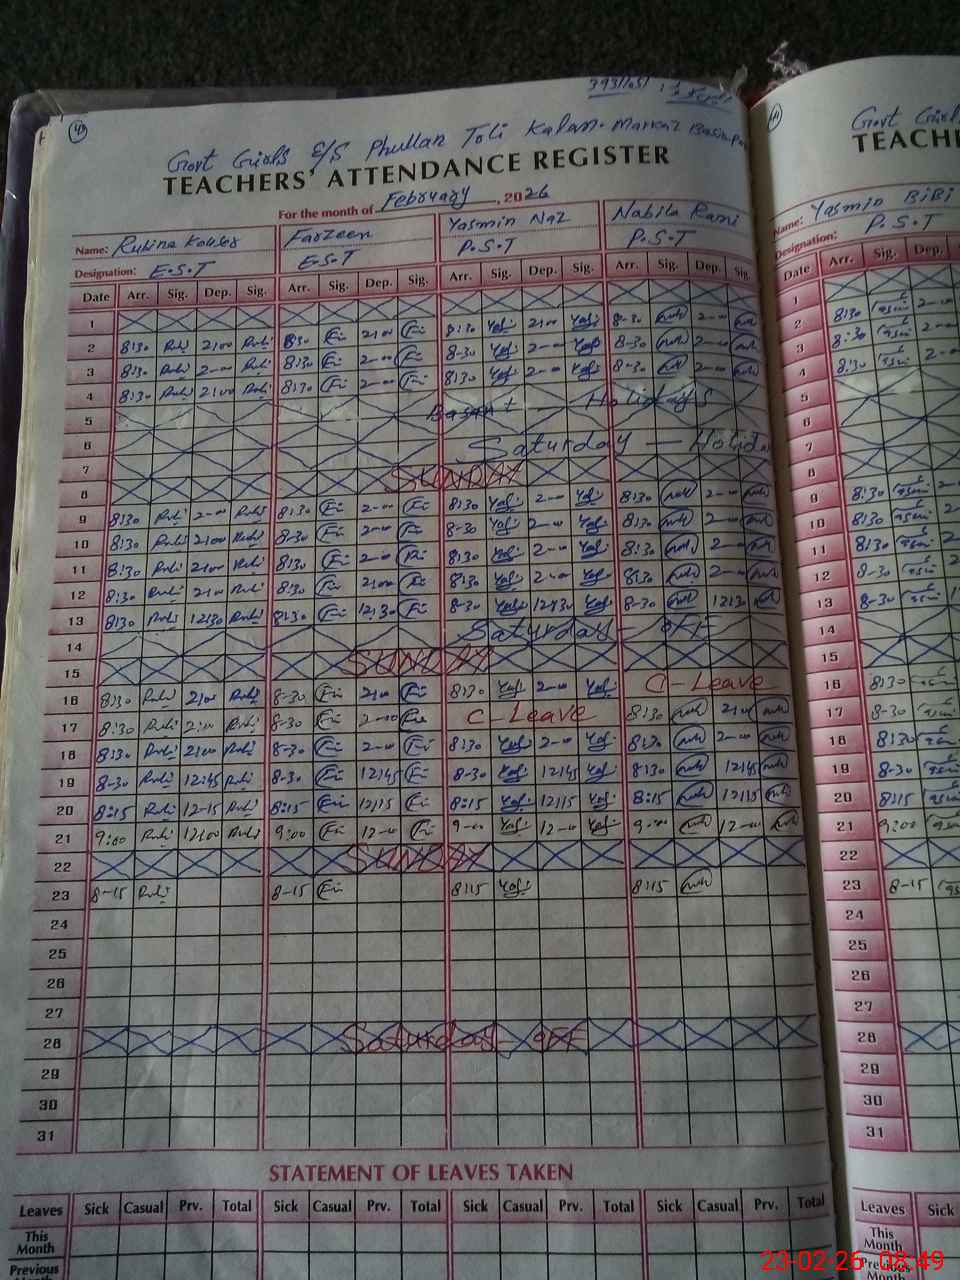 40
Govt Girls E/S Phullan Toli Kalan. Markaz
TEACHERS' ATTENDANCE REGISTER
For the month of February, 2026
Name: Rubina Kouser Farzeen Yasmin Naz Nabila Rami
Designation: E.S.T E.S.T P.S.T P.S.T
Date Arr. Sig. Dep. Sig. Arr. Sig. Dep. Sig. Arr. Sig. Dep. Sig. Arr. Sig. Dep. Sig.
1
2 8:30 Rubi 2:00 Rubi 8:30 2:00 8:30 Yas: 2:00 Yas: 8-30 2-00
3 8:30 Rubi 2-00 Rubi 8:30 2-00 8-30 Yas: 2-00 Yas: 8-30 2-00
4 8:30 Rubi 2:00 Rubi 8:30 2-00 8:30 Yas: 2-00 Yas: 8-30 2-00
5 Basant — Holidays
6
7 Saturday — Holida
8 SUNDAY
9 8:30 Rubi 2-00 Rubi 8:30 2-00 8:30 Yas: 2-00 Yas: 8:30 2-00
10 8:30 Rubi 2:00 Rubi 8-30 2-00 8-30 Yas: 2-00 Yas: 8:30 2-00
11 8:30 Rubi 2:00 Rubi 8:30 2-00 8:30 Yas: 2-00 Yas: 8:30 2-00
12 8:30 Rubi 2:00 Rubi 8:30 2:00 8:30 Yas: 2-00 Yas: 8:30 2-00
13 8:30 Rubi 12:30 Rubi 8:30 12:30 8-30 Yas: 12:30 Yas: 8-30 12:30
14 Saturday — OFF
15 SUNDAY
16 8:30 Rubi 2:00 Rubi 8-30 2:00 8:30 Yas: 2-00 Yas: C-Leave
17 8:30 Rubi 2:00 Rubi 8-30 2-00 C-Leave 8:30 2:00
18 8:30 Rubi 2:00 Rubi 8-30 2-00 8:30 Yas: 2-00 Yas: 8:30 2-00
19 8-30 Rubi 12:45 Rubi 8-30 12:45 8-30 Yas: 12:45 Yas: 8:30 12:45
20 8:15 Rubi 12-15 Rubi 8:15 12:15 8:15 Yas: 12:15 Yas: 8:15 12:15
21 9:00 Rubi 12:00 Rubi 9:00 12-00 9-00 Yas: 12-00 Yas: 9:00 12-00
22 SUNDAY
23 8-15 Rubi 8-15 8:15 Yas: 8:15
24
25
26
27
28 Saturday OFF
29
30
31
STATEMENT OF LEAVES TAKEN
Leaves Sick Casual Prv. Total Sick Casual Prv. Total Sick Casual Prv. Total Sick Casual Prv. Total
This Month
Previous Month
41
Govt Girls
TEACHE
Name: Yasmin BiBi
Designation: P.S.T
Date Arr. Sig. Dep.
1
2 8:30 2-00
3 8:30 2-00
4 8:30 2-0
5
6
7
8
9 8:30 2-
10 8:30 2-
11 8:30
12 8-30
13 8-30
14
15
16 8:30
17 8-30
18 8:30
19 8-30
20 8:15
21 9:00
22
23 8-15
24
25
26
27
28
29
30
31
Leaves Sick
This Month
Previous
23-02-26 08:49